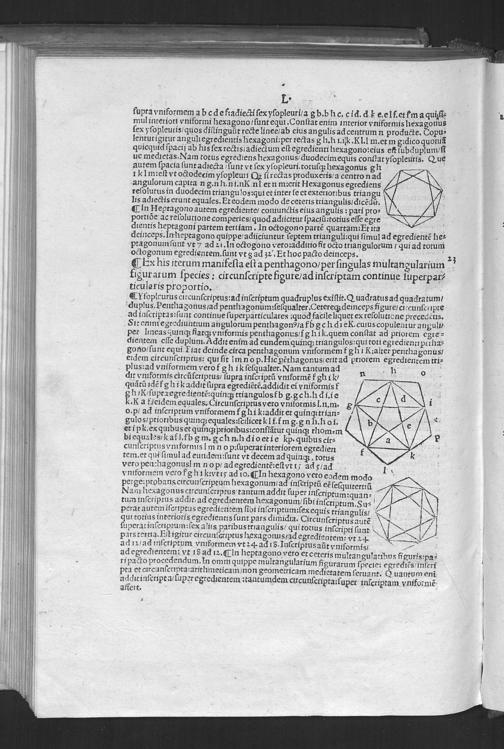 L.
supra vniformem a b c d e f: adiecti sex ysopleuri/a g b. b h c. c i d. d k e. e l f. et f m a qui si
mul interiori vniformi hexagono sunt equi. Constat enim interior vniformis hexagonus
sex ysopleuris: quos distinguũt recte linee/ ab eius angulis ad centrum n producte. Copu
lentur igitur anguli egredientis hexagoni: per rectas g h. h i. ik. Kl. l m. et m g: dico quot
quicquid spacij ab his sex rectis: adiectum est egredienti hexagono: eius est subduplum/si
ue medietas. Nam totus egrediens hexagonus: duodecim equis constat ysopleuris. Que
autem spacia sunt adiecta: sunt vt sex ysopleuri. totusq₃ hexagonus g h
i k l m: est vt octodecim ysopleuri
angulorum capita n g. n h. n i. n K n l et n m: erit Hexagonus egrediens
resolutus in duodecim triangulos: qui et inter se et exterioribus triangu
lis adiectis erunt equales. Et eodem modo de ceteris triangulis: dicẽdũ.
¶ In Heptagono autem egrediente: coniunctis eius angulis: pari pro
portiõe ac resolutione comperies: quod adiicitur spacij: totius esse egre
dientis heptagoni partem tertiam. In octogono partẽ quartam: Et ita
deinceps. In heptagono quippe: adiiciuntur septem trianguli: qui simul ad egrediẽtẽ hep
ptagonum: sunt vt 7 ad 21. In octogono vero: additio fit octo triangulorum: qui ad totum
octogonum egredientem. sunt vt 8 ad 32. Et hoc pacto deinceps.
¶ Ex his iterum manifesta est a penthagono/per singulas multangularium
23
figurarum species: circunscripte figure/ad inscriptam continue superpar
ticularis proportio.
¶ Ysopleurus circunscriptus: ad inscriptum quadruplus existit. Quadratus ad quadratum/
duplus. Penthagonus/ad penthagonum: sesqualter. Ceterẽq₃ deinceps figure: circunscripte
ad inscriptas: sunt continue superparticulares
Sit enim egredientium angulorum penthagon9/a f b g c h d i e K. cuius copulentur anguli/
per lineas quinq₃: fiatq₃ vniformis penthagonus: f g h i k. quem constat ad priorem egre=
dientem esse duplum. Addit enim ad eundem quinq₃ triangulos: qui toti egredienti pẽtha
gono: sunt equi. Fiat deinde circa penthagonum vniformem f g h i K: alter pentagonus/
eidem circunscriptus: qui sit l m n o p. Hic pẽthagonus: erit ad priorem egredientem tri=
plus: ad vniformem vero f g h i k sesqualter. Nam tantum ad
dit vniformis circũscriptus: supra inscriptũ vniformẽ f g h i k/
quãtũ idẽ f g h i k addit supra egrediẽtẽ. addidit eĩ vniformis f
g h i K: supra egrediẽtẽ: quinq₃ triangulos f b g. g c h. h d i. i e
k. K a f: eidem equales. Circunscriptus vero vniformis l. n, m,
o, p/ ad inscriptum vniformem f g h i k: addit et quinq₃ trian=
gulos/ prioribus quinq₃ equales: scilicet k l f. f m g. g n h. h o i.
et i p k. ex quibus et quinq₃ prioribus: conflãtur quinq₃ rhom=
bi equales/ k a f l. f b g m. g c h n. h d i o et i e kp. quibus cir=
cunscriptus vniformis l m n o p: superat interiorem egredien
tem. et qui simul ad eundem: sunt vt decem ad quinq₃. totus
vero penthagonus l m n o p/ ad egrediẽtẽ: est vt 15 ad 5/ ad
vniformem vero f g h i k: vt 15 ad 10. ¶ In hexagono vero eodem modo
perge: probans circunscriptum hexagonum/ ad inscriptũ eẽ sesquitertiũ.
Nam hexagonus circunscriptus: tantum addit super inscriptum: quan=
tum inscriptus addit ad egredientem hexagonum/ sibi inscriptum. Su=
perat autẽ inscriptus egredientem sibi inscriptum: sex equis triangulis/
qui totius interioris egredientis sunt pars dimidia. Circunscriptus autẽ
superat inscriptum: sex alijs paribus triangulis/ qui totius inscripti sunt
pars tertia. Est igitur circunscriptus hexagonus/ ad egredientem: vt 24.
ad 12/ ad inscriptum vniformem vt 24. ad 18. Inscriptus aũt vniformis/
ad egredientem: vt 18 ad 12. ¶ In heptagono vero et ceteris multangularibus figuris: pa=
ri pacto procedendum. In omni quippe multangularium figurarum specie: egrediẽs inscri
pta et circunscripta: arithmeticam/ non geometricam medietatem seruant. Quantum eni
addit inscripta/ super egredientem: tantumdem circunscripta: super inscriptam vniformẽ
asserit.
n h o
c d
g i
b e
a
m p
f k
l